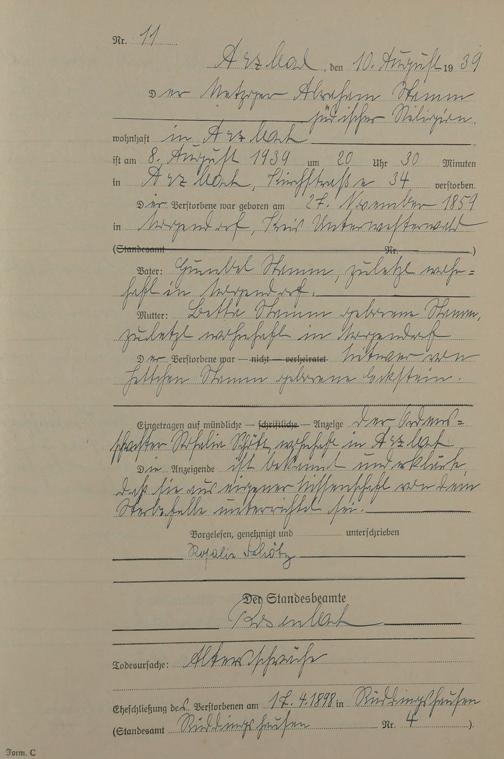 Nr. 11
Arzbach, den 10. August 1939
Der Metzger Abraham Stamm
jüdischer Religion.
wohnhaft in Arzbach
ist am 8. August 1939 um 20 Uhr 30 Minuten
in Arzbach, Kirchstraße 34 verstorben.
Der Verstorbene war geboren am 27. November 1859
in Nordendorf, Kreis Unterwesterwald
(Standesamt Nr. )
Vater: Gumbel Stamm, zuletzt wohn=
haft in
Mutter: Betta Stamm geborene Stamm,
zuletzt wohnhaft in
Der Verstorbene war — nicht — verheiratet Witwer von
Jettchen Stamm geborene Eckstein.
Eingetragen auf mündliche — schriftliche — Anzeige der Ordens=
schwester Rosalie wohnhaft in Arzbach
Die Anzeigende ist bekannt und erklärte,
daß sie aus eigener Wissenschaft von dem
Sterbefalle unterrichtet sei.
Vorgelesen, genehmigt und unterschrieben
Rosalie
Der Standesbeamte
Todesursache: Altersschwäche
Eheschließung des Verstorbenen am 17.4.1898 in Rüddingshausen
(Standesamt Rüddingshausen Nr. 4 ).
Form. C